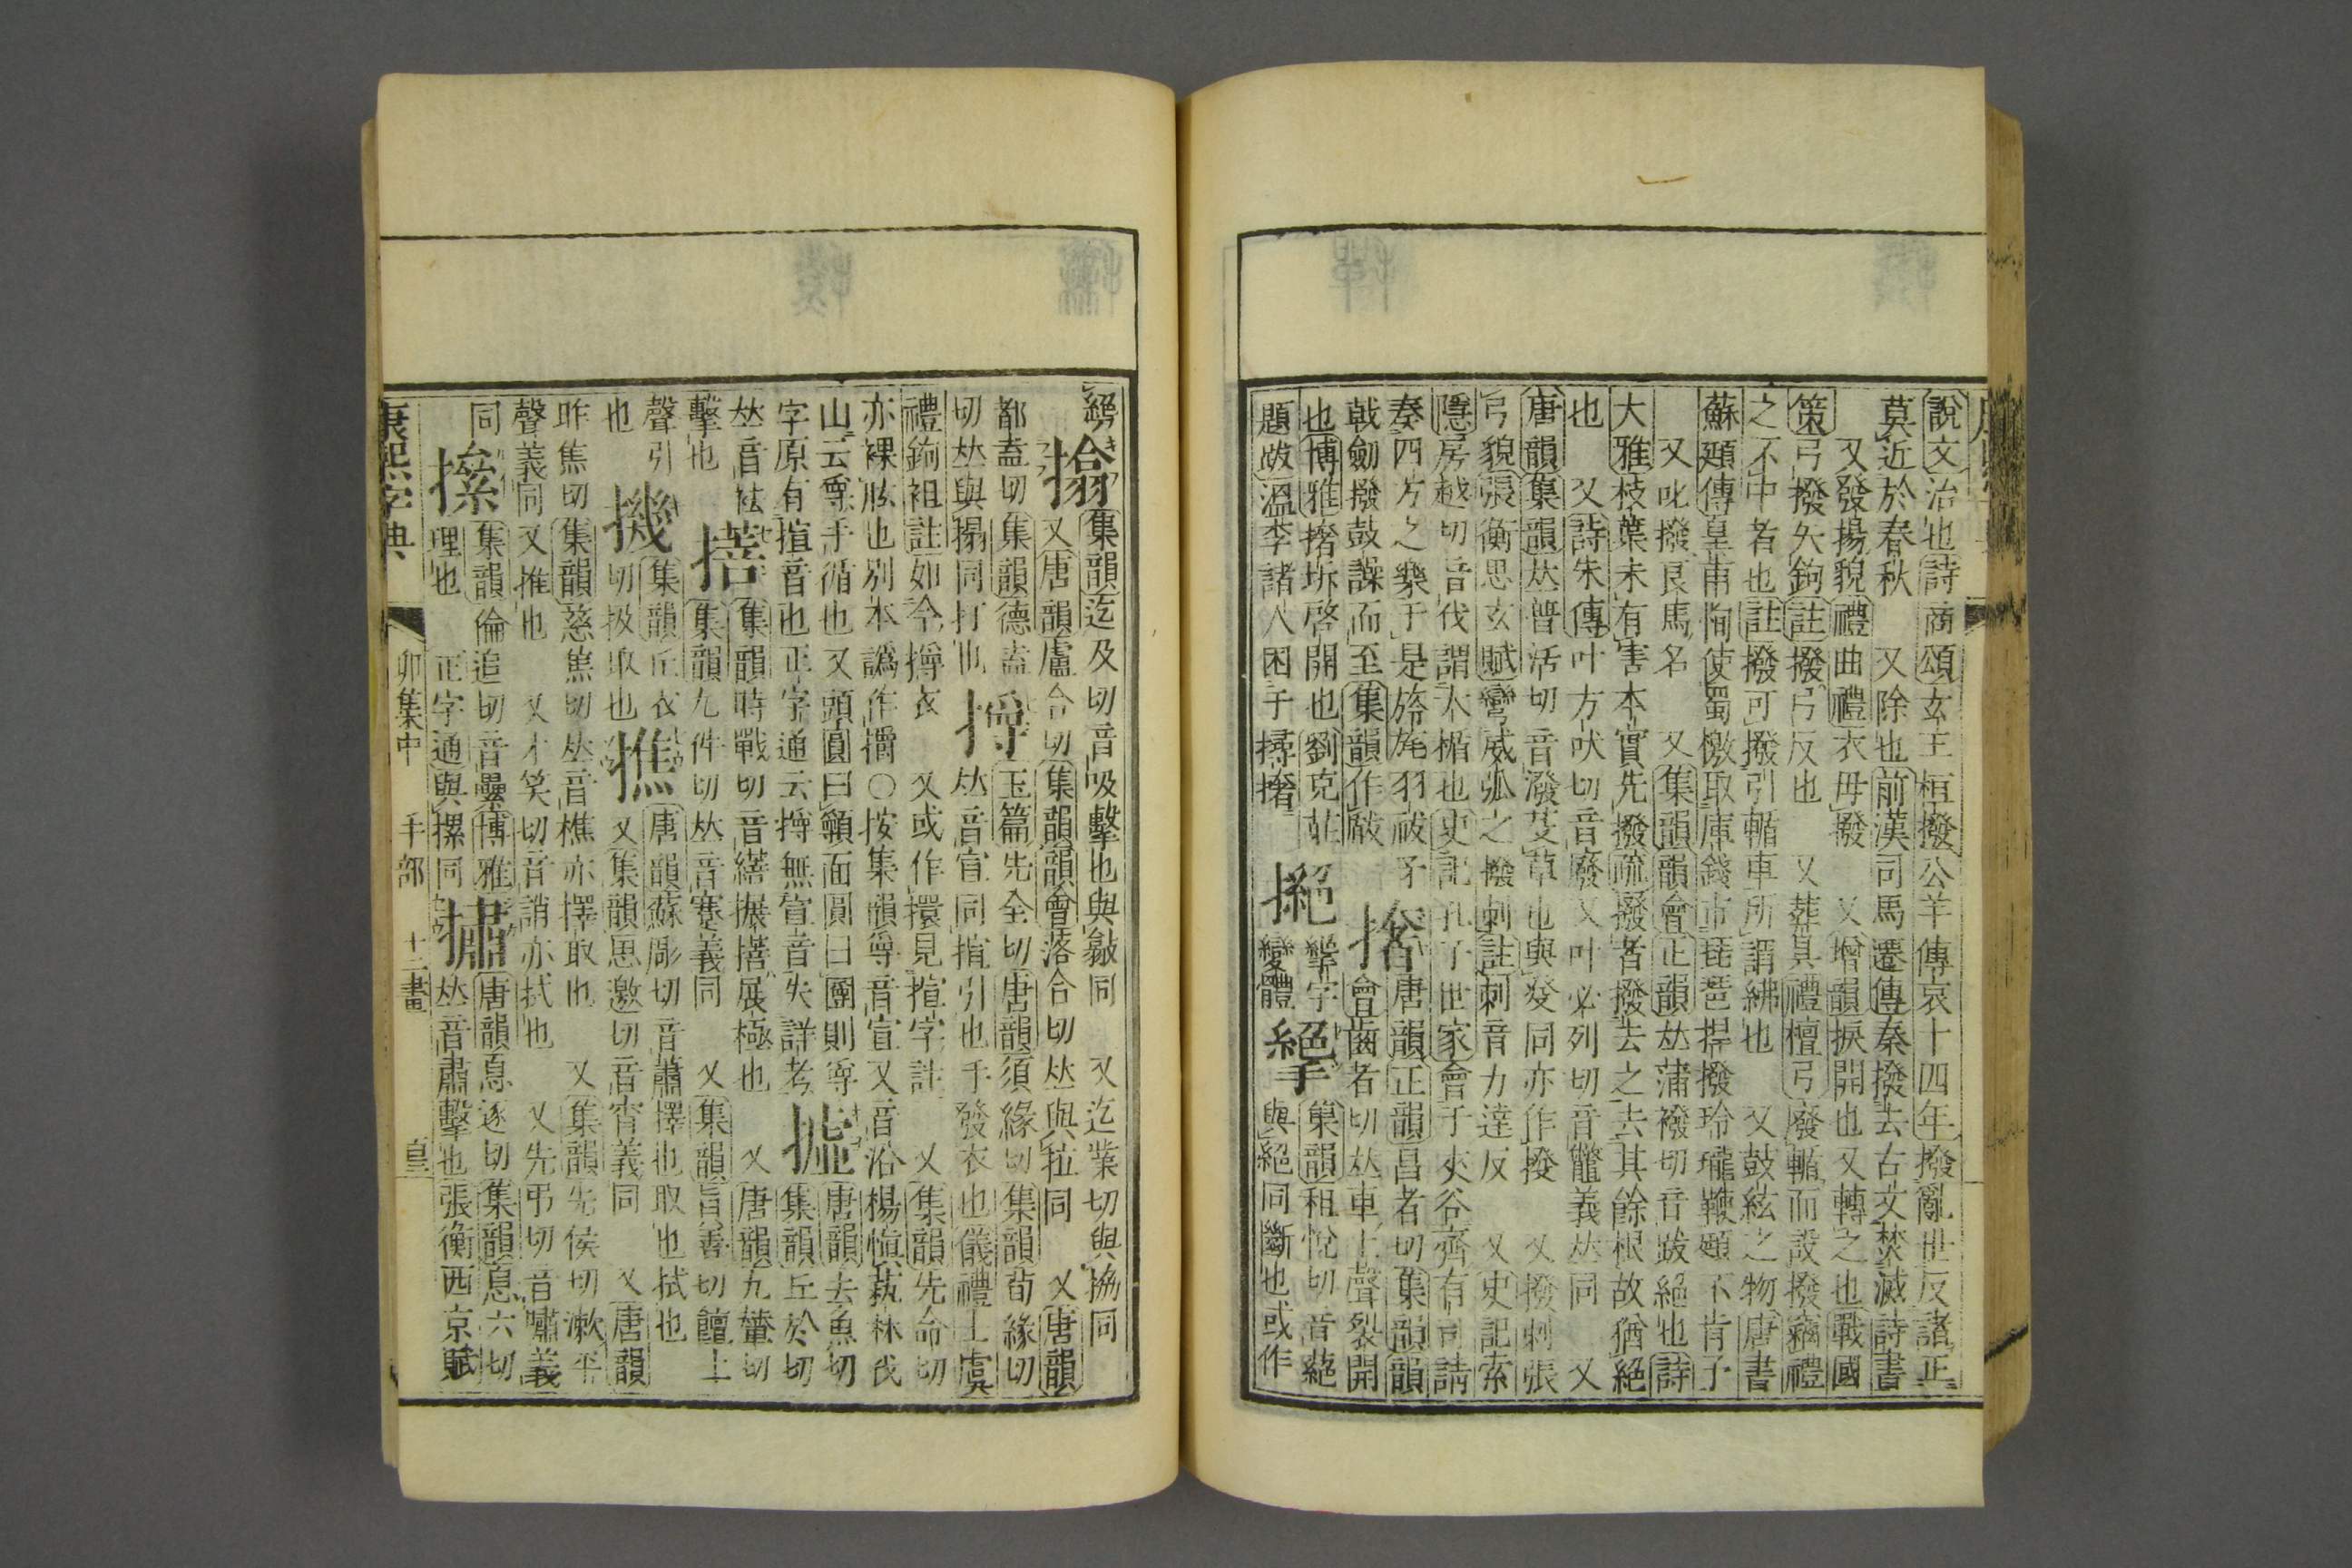 說文治也詩商頌玄王桓撥公羊傳哀十四年撥亂世反諸正
莫近於春秋 又除也前漢司馬遷傳秦撥去古文焚滅詩書
又發揚貌禮曲禮衣毋撥 又增韻捩開也又轉之也戰國
策弓撥矢鉤註撥弓反也 又葬具禮檀弓廢輴而設撥竊禮
之不中者也註撥可撥引輴車所謂紼也 又鼓絃之物唐書
蘇頲傳皇甫恂使蜀檄取庫錢市琵琶捍撥玲瓏鞭頲不肯子
又叱撥良馬名 又集韻韻會正韻𠀤蒲襏切音跋絕也詩
大雅枝葉未有害本實先撥疏撥者撥去之去其餘根故猶絕
也 又詩朱傳叶方吠切音廢又叶必列切音鼈義𠀤同 又
唐韻集韻𠀤普活切音潑芟草也與癹同亦作撥 又撥剌張
弓貌張衡思玄賦彎威弧之撥剌註剌音力達反 又史記索
隱房越切音伐謂大楯也史記孔子世家會于夾谷齊有司請
奏四方之樂于是旍旄羽祓矛
戟劒撥鼓譟而至集韻作瞂
撦唐韻正韻昌者切集韻韻
會齒者切𠀤車上聲裂開
也博雅撦坼啓開也劉克莊
題跋溫李諸人困于撏撦
㩉
㔢字
變體
㔢集韻租悅切音蕝
與絕同斷也或作
㩉
㩉集韻迄及切音吸擊也與㪉同 又迄業切與脅同
又唐韻盧合切集韻韻會落合切𠀤與拉同 又唐韻
都盍切集韻德盍
切𠀤與搨同打也
撙玉篇先全切唐韻須緣切集韻荀緣切
𠀤音宣同揎引也手發衣也儀禮士虞
禮鉤袒註如今撙衣 又或作擐見揎字註 又集韻先命切
亦裸肱也別本譌作擐○按集韻撙音宣又音浴楊愼蓺林伐
山云撙手循也又頭圓曰顊面圓曰團則撙
字原有揎音也正字通云撙無宣音失詳考
㩀唐韻去魚切
集韻丘於切
𠀤音袪
擊也
撎集韻時戰切音繕㩉撎展極也 又唐韻九輦切
集韻九件切𠀤音蹇義同 又集韻旨善切饘上
聲引
也
機集韻丘衣
切扱取也
撨唐韻蘇彫切音蕭擇也取也拭也
又集韻思邀切音宵義同 又唐韻
昨焦切集韻慈焦切𠀤音樵亦擇取也 又集韻先侯切漱平
聲義同又推也 又才笑切音誚亦拭也 又先弔切音嘯義
同
㩯集韻倫追切音纍博雅
理也 正字通與摞同
㩋唐韻息逐切集韻息六切
𠀤音肅擊也張衡西京賦
康熙字典 卯集中 手部 十二畫